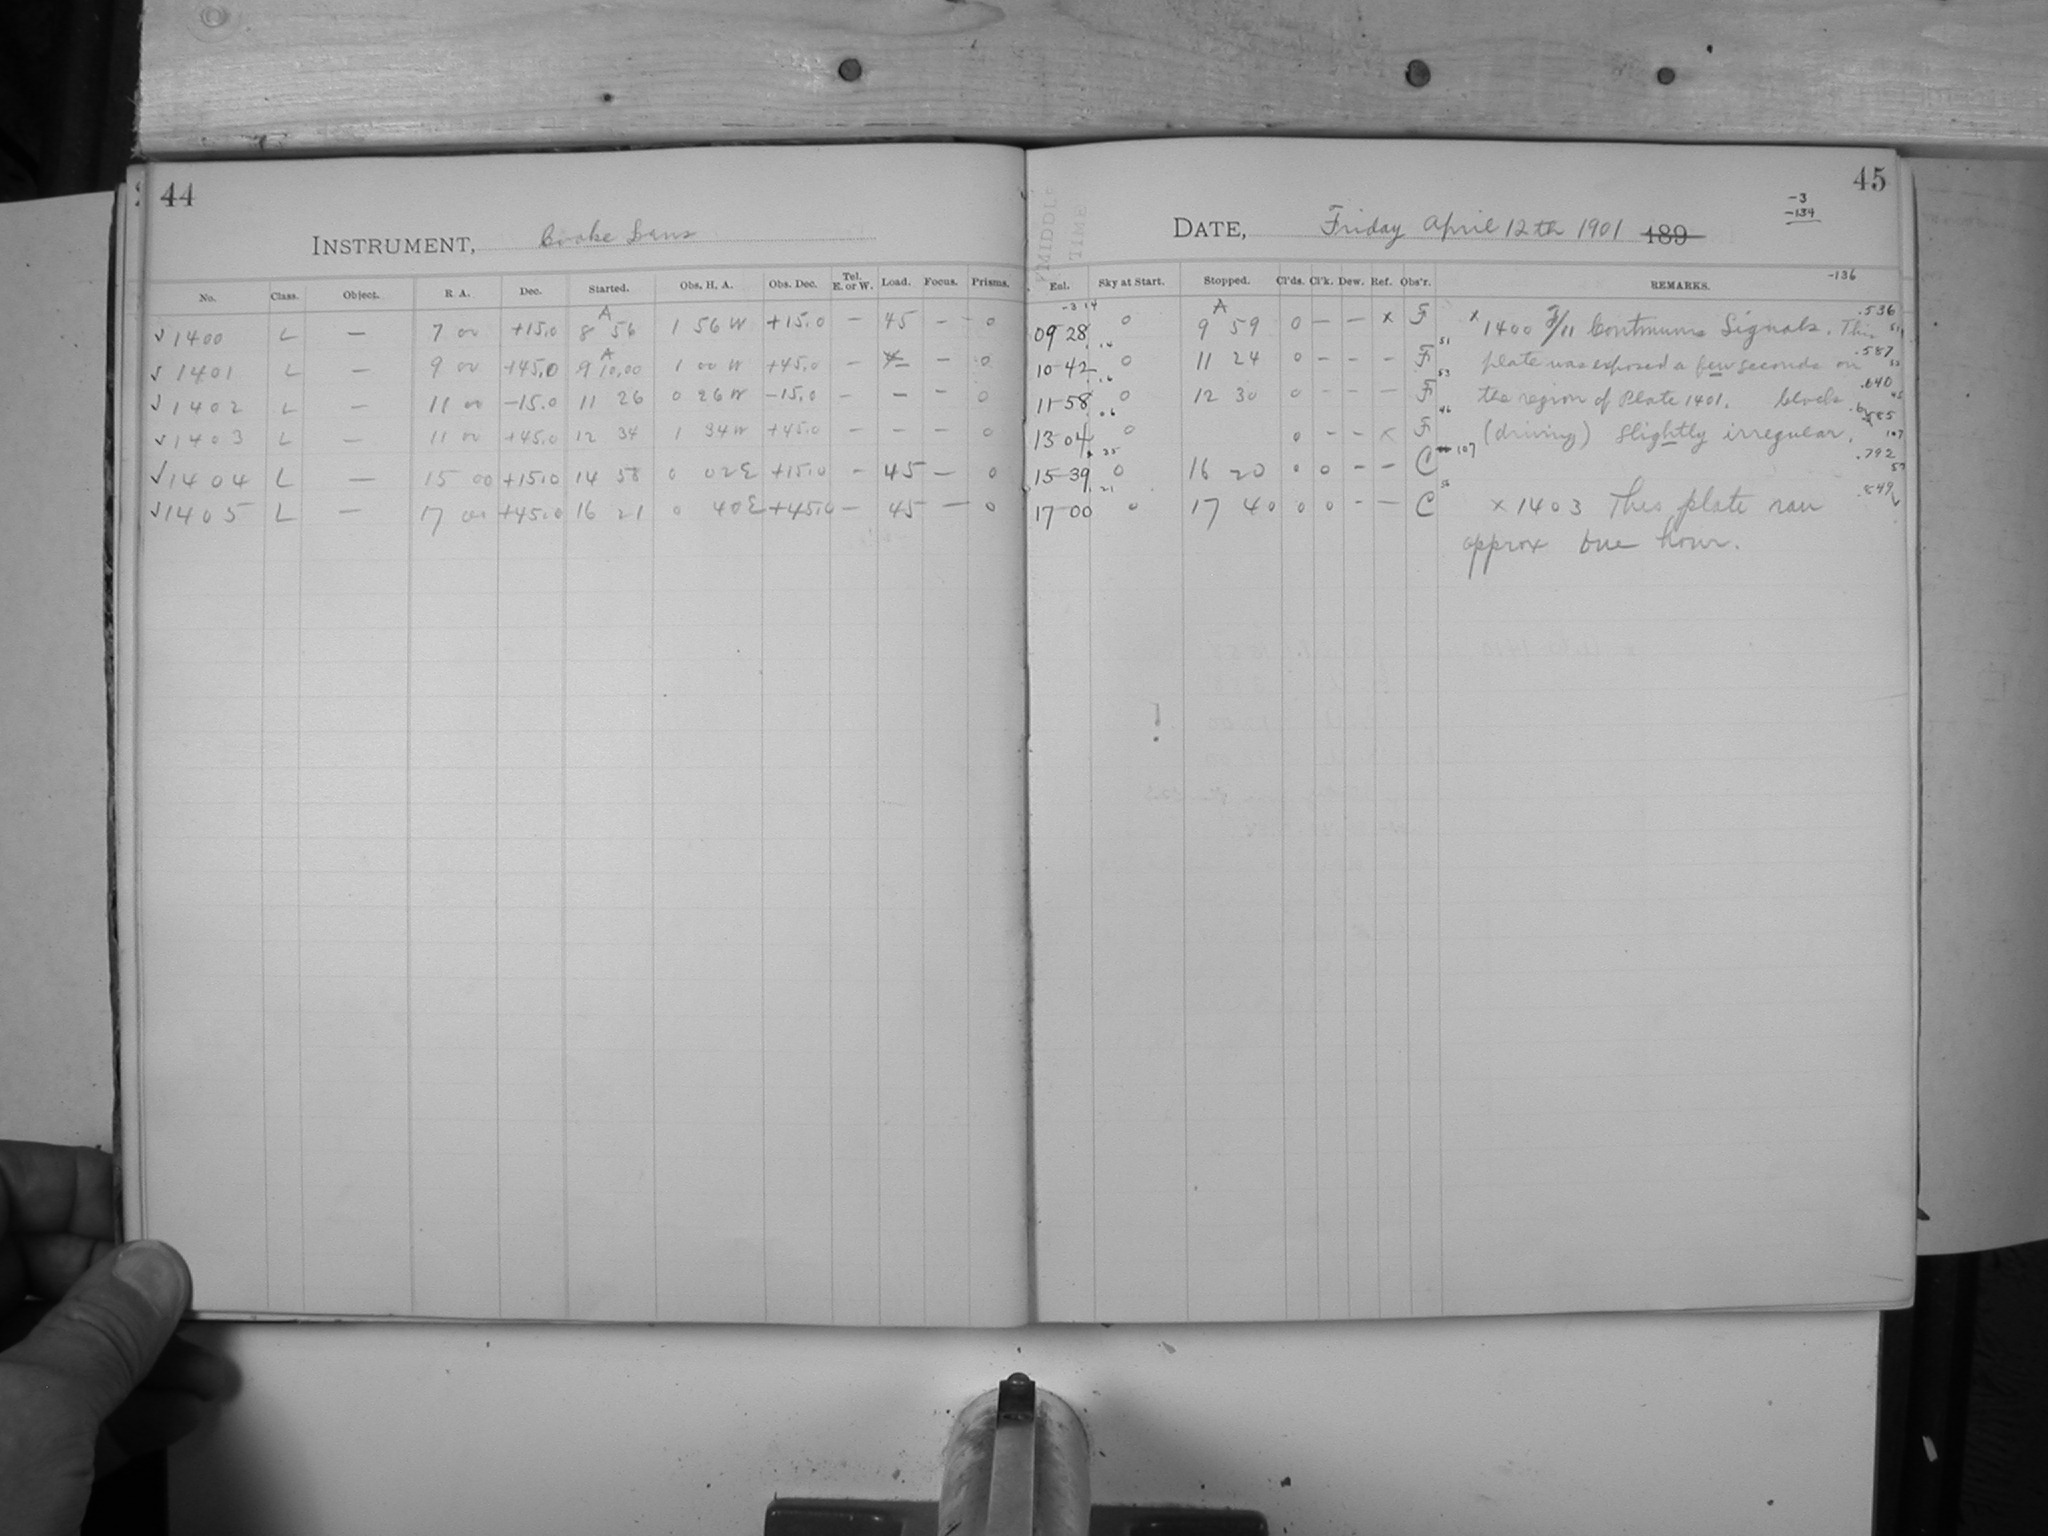 44
INSTRUMENT, Cooke Lens
No. Class. Object. R. A. Dec. Started. Obs. H. A. Obs. Dec. Tel. E. or W. Load. Focus. Prisms.
√1400 L — 7 00 +15.0 A 8 56 1 56 W +15.0 — 45 — 0
√1401 L — 9 00 +45.0 A 9 10.00 1 00 W +45.0 — — 0
√1402 L — 11 00 -15.0 11 26 0 26 W -15.0 — — — 0
√1403 L — 11 00 +45.0 12 34 1 34 W +45.0 — — — 0
√1404 L — 15 00 +15.0 14 58 0 02 E +15.0 — 45 — 0
√1405 L — 17 00 +45.0 16 21 0 40 E +45.0 — 45 — 0
45
-3
-134
-136
MIDDLE
TIME
DATE, Friday April 12th 1901 189
Ent. Sky at Start. Stopped. Cl'ds. Cl'k. Dew. Ref. Obs'r. REMARKS.
-3 14
09-28 0 A 9 59 0 — — x F x 1400 Continuous Signals. This .536
10-42 0 11 24 0 — — — F plate was exposed a few seconds on .587
11-58 0 12 30 0 — — — F the region of Plate 1401. Clock .640
13-04 0 0 — — x F (driving) slightly irregular. 685
15-39 0 16 20 0 0 — — C 107 .792
17-00 0 17 40 0 0 — — C x 1403 This plate ran .849
approx one hour.